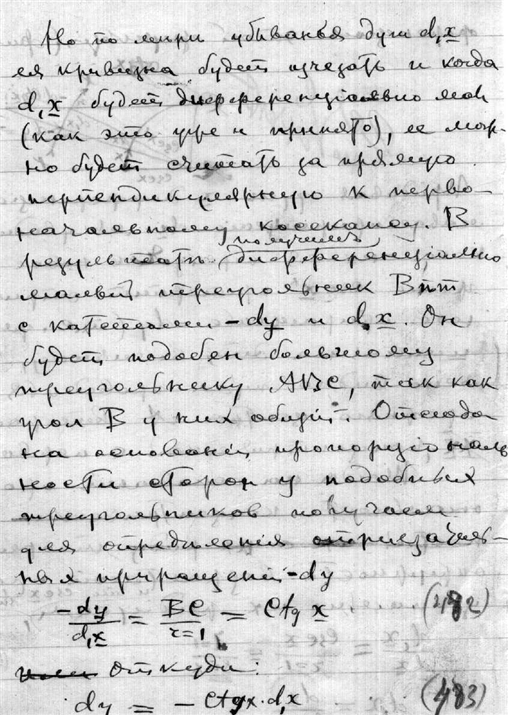 Но по мири убыванья дуги d,x
ея кривизна будет изчезать и когда
d,x будет дифференціально мал
(как это уже и принято), ее мож-
но будет считать за прямую
перпендикулярную к перво-
начальному косекансу. В
результати получим дифференціально
малый треугольник Bnm
с катетами -dy и d,x. Он
будет подобен большому
треугольнику ABC, так как
угол B у них общій. Отсюда
на основаніи пропорціональ
ности сторон у подобных
треугольников получаем
для определенія отрицатель-
ныя приращеній -dy
-dy/d,x = BC/r=1 = Ctg x (482)
откуда:
dy = - Ctgx·d,x (483)